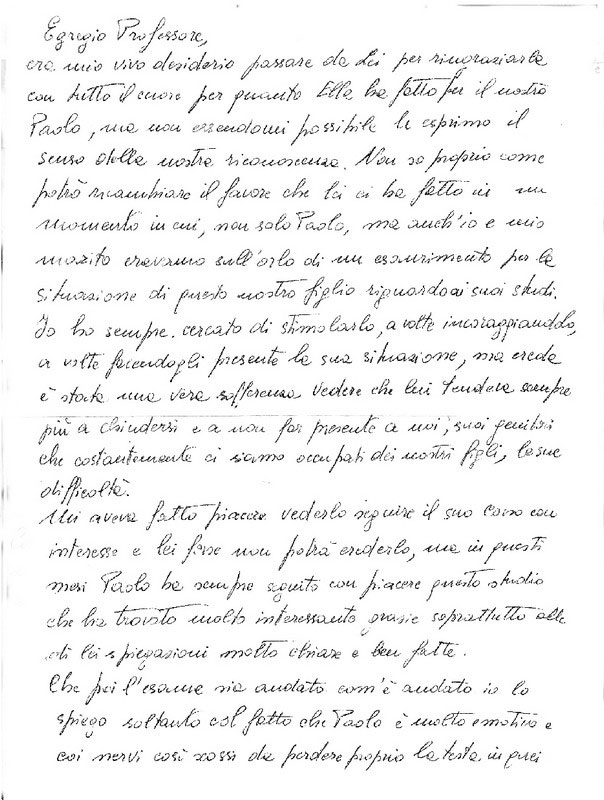 Egregio Professore,
era mio vivo desiderio passare da Lei per ringraziarla
con tutto il cuore per quanto Ella ha fatto per il nostro
Paolo, ma non essendomi possibile le esprimo il
senso della nostra riconoscenza. Non so proprio come
potrò ricambiare il favore che lei ci ha fatto in un
momento in cui, non solo Paolo, ma anch'io e mio
marito eravamo sull'orlo di un esaurimento per la
situazione di questo nostro figlio riguardo ai suoi studi.
Io ho sempre cercato di stimolarlo, a volte incoraggiandolo,
a volte facendogli presente la sua situazione, ma creda
è stata una vera sofferenza vedere che lui tendeva sempre
più a chiudersi e a non far presente a noi, suoi genitori
che costantemente ci siamo occupati dei nostri figli, le sue
difficoltà.
Mi aveva fatto piacere vederlo seguire il suo corso con
interesse e lei forse non potrà crederlo, ma in questi
mesi Paolo ha sempre seguito con piacere questo studio
che ha trovato molto interessante grazie soprattutto alle
di lei spiegazioni molto chiare e ben fatte.
Che poi l'esame sia andato com'è andato io lo
spiego soltanto col fatto che Paolo è molto emotivo e
coi nervi così scossi da perdere proprio la testa in quei